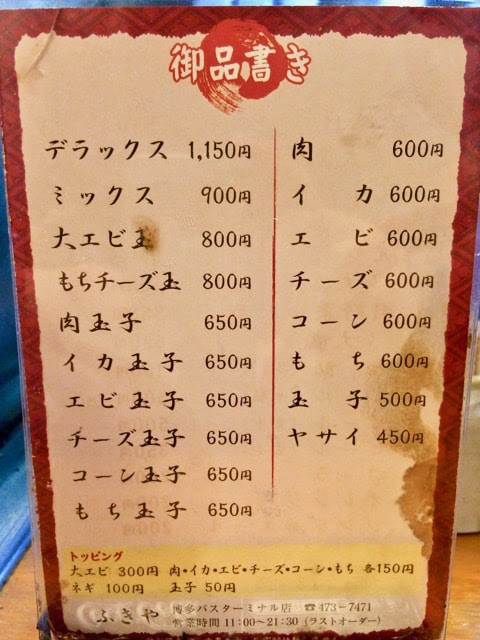 御品書き
デラックス 1,150円
ミックス 900円
大エビ玉 800円
もちチーズ玉 800円
肉玉子 650円
イカ玉子 650円
エビ玉子 650円
チーズ玉子 650円
コーン玉子 650円
もち玉子 650円
肉 600円
イカ 600円
エビ 600円
チーズ 600円
コーン 600円
もち 600円
玉子 500円
ヤサイ 450円
トッピング
大エビ 300円 肉・イカ・エビ・チーズ・コーン・もち 各150円
ネギ 100円 玉子 50円
ふきや 博多バスターミナル店 ☎473-7471
営業時間 11:00〜21:30 (ラストオーダー)